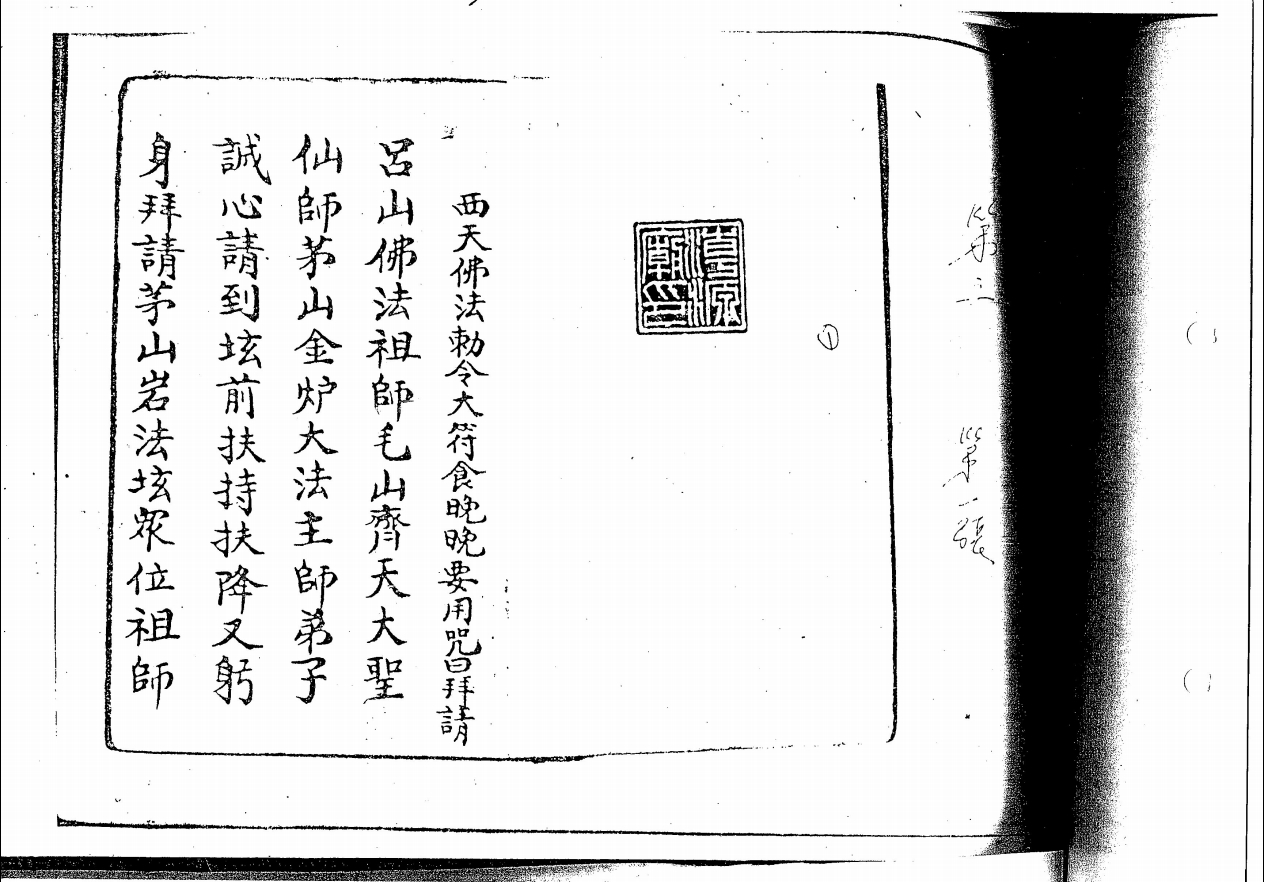 第三
第一張
①
清源廟印
西天佛法勅令大符食晚晚要用咒曰拜請
呂山佛法祖師毛山齊天大聖
仙師茅山金炉大法主師弟子
誠心請到坛前扶持扶降又躬
身拜請茅山岩法坛眾位祖師